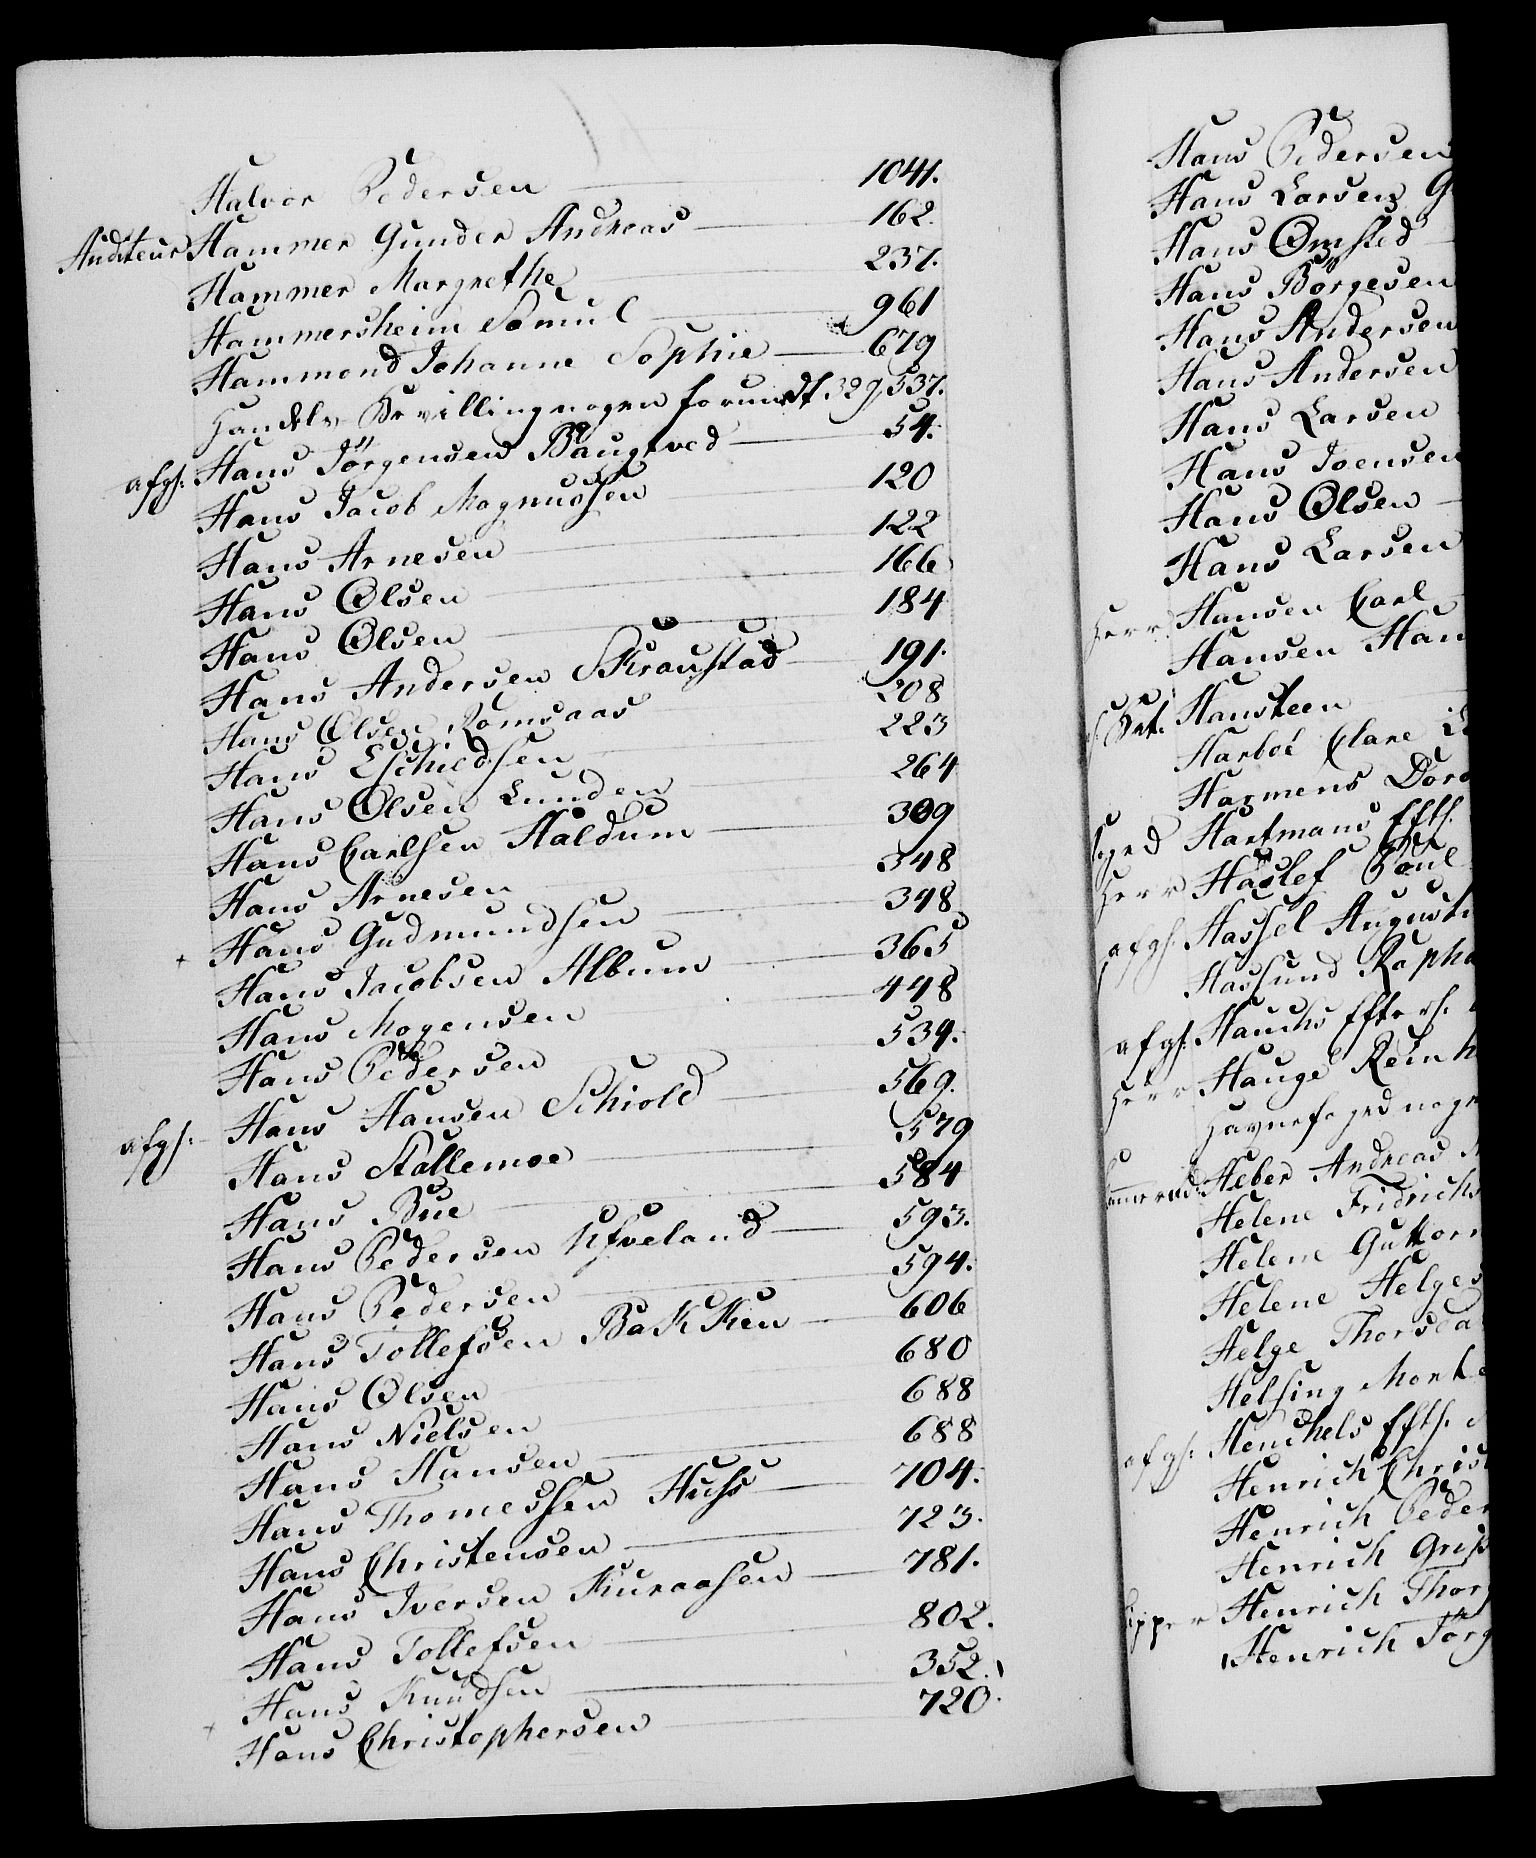 Halvor Pedersen 1041.
Auditeur Hammer Gunder Andreas 162.
Hammer Margrethe 237.
Hammersheim Samuel 961
Hammond Johanne Sophie 679
Handels Bevilling nogen forundt 329, 537.
afg: Hans Jörgensen Baugeved 54.
Hans Jacob Magnussen 120
Hans Arnesen 122
Hans Olsen 166
Hans Olsen 184
Hans Andersen Skraustad 191.
Hans Olsen Romsaas 208
Hans Eschildsen 223
Hans Olsen Lunden 264
Hans Carlsen Haldum 309
Hans Arnesen 348
Hans Gudmundsen 398
Hans Jacobsen Album 365
Hans Mogensen 448
Hans Pedersen 539.
afg: Hans Hansen Schiold 569.
Hans Stallemoe 579
Hans Bue 584
Hans Pedersen Ufveland 593.
Hans Pedersen 594.
Hans Tollefsen Bakken 606
Hans Olsen 680
Hans Nielsen 688
Hans Hansen 688
Hans Thomessen Huss 704.
Hans Christensen 723.
Hans Iversen Kuraasen 781.
Hans Tollefsen 802.
Hans Knudsen 352.
Hans Christophersen 720.
Hans Pedersen
Hans Larsen
Hans Omsted
Hans Börgesen
Hans Andersen
Hans Andersen
Hans Larsen
Hans Joensen
Hans Olsen
Hans Larsen
Herr Hansen Carl
Hansen Han
Hansteen
Harboe Clare
Harmens Doro
Hartmans Efth.
Herr Haslef Poul
afg: Hassel August
Hassund Rapha
afg: Hauchs Efterh.
Herr Hauge Rein
Havnefoged nogen
Heber Andreas
Helene Fridrichs
Helene Guttor
Helene Helges
Helge Thorsda
Helsing Mort
afg: Henchels Efth.
Henrich Chris
Henrich Peder
Henrich Gris
Henrich Thor
Henrich Jörg